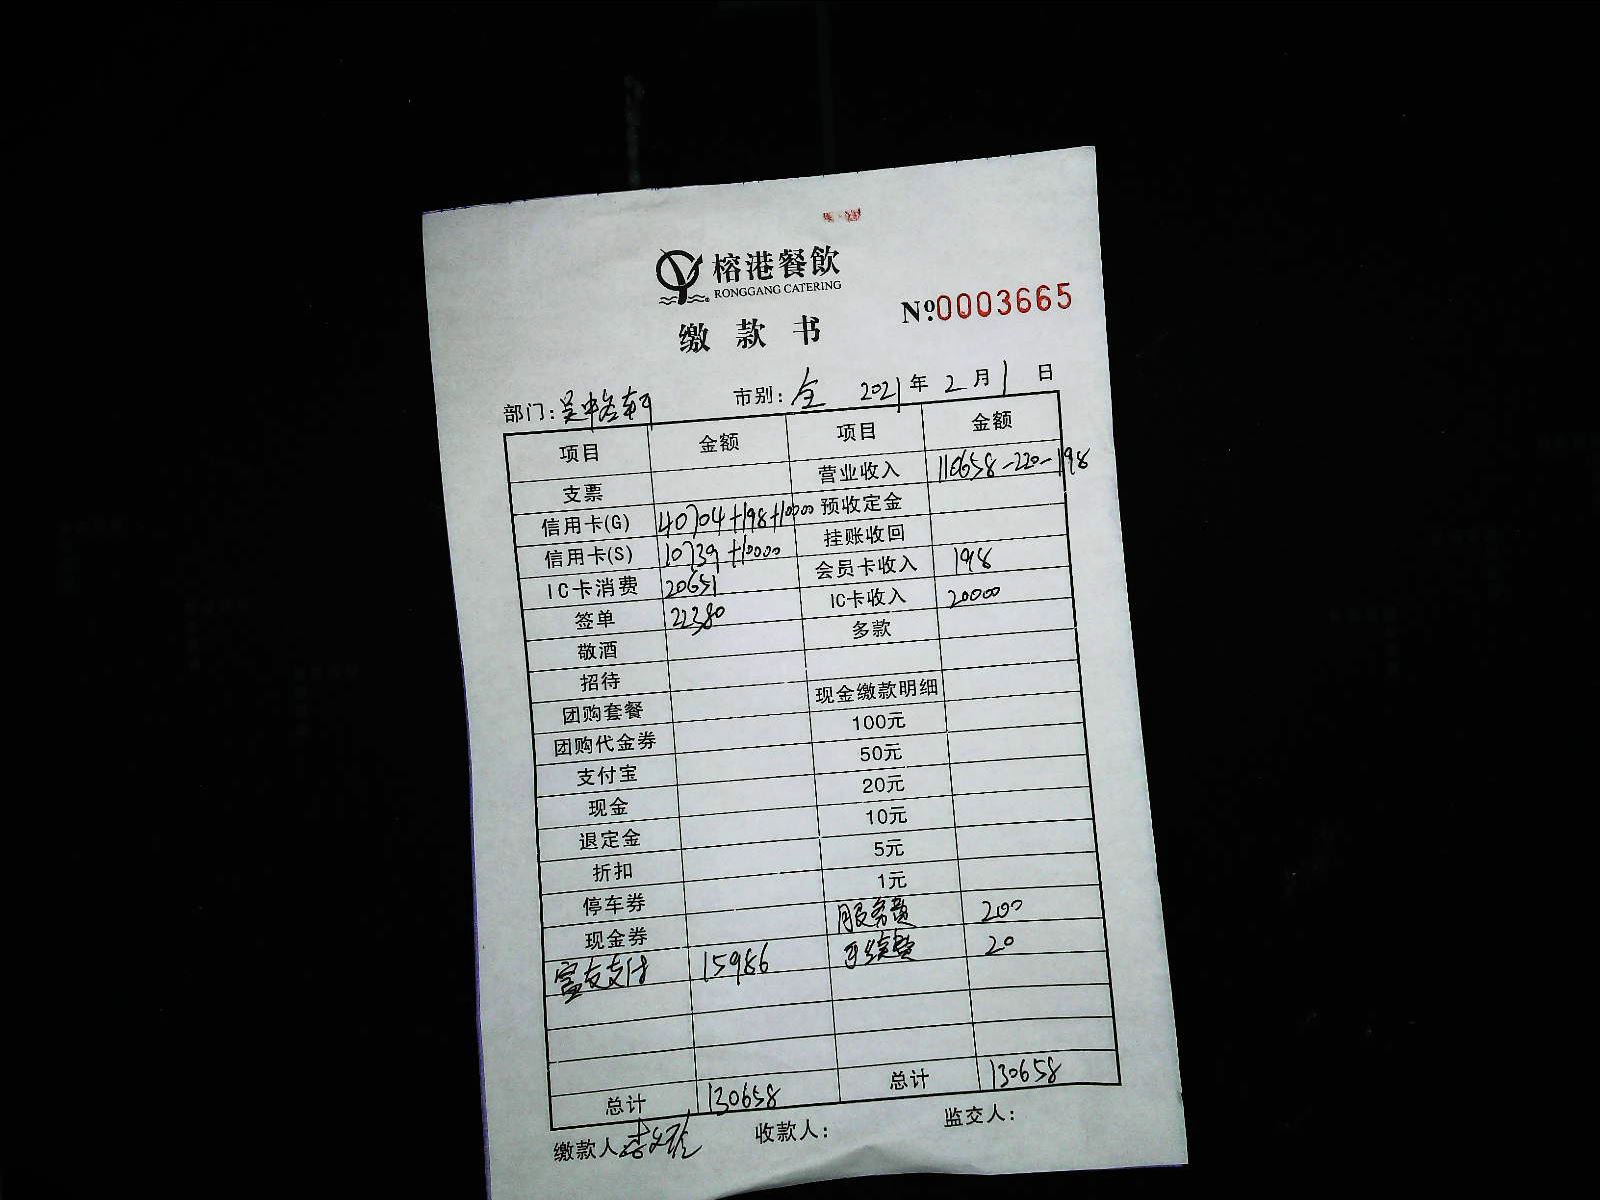 榕港餐飲
RONGGANG CATERING
缴款书 Nº 0003665
部门: 吴中路 市别: 全 2021 年 2 月 1 日
项目 金额 项目 金额
支票 营业收入 110658-220-198
信用卡(G) 40704+198+10000 预收定金
信用卡(S) 10739+10000 挂账收回
IC卡消费 20651 会员卡收入 198
签单 22380 IC卡收入 20000
敬酒 多款
招待
团购套餐 现金缴款明细
团购代金券 100元
支付宝 50元
现金 20元
退定金 10元
折扣 5元
停车券 1元
现金券 服务费 200
富友支付 15986 手续费 20
总计 130658 总计 130658
缴款人 收款人: 监交人: